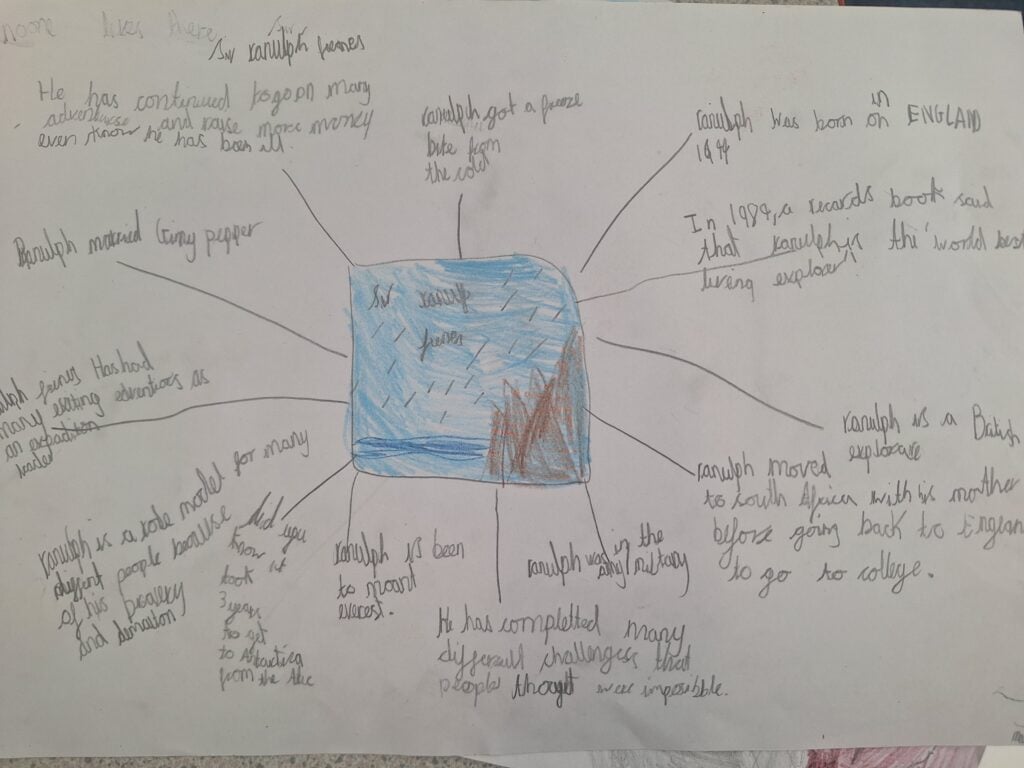 noone lives there
Sir ranulph fiennes
He has continued to go on many
adventurse and raise more money
even know he has been ill.
ranulph got a freeze
bite from
the cold
ranulph was born on in ENGLAND
In 1984, a records book said
that ranulph is the 'world best
liveing explorer'!
Ranulph married Ginny pepper
Sir ranulph
fiennes
many exiting adventiors as
an expadition
leader
ranulph is a British
explorare
ranulph moved
to south Africa with his mother
before going back to England
to go to college.
ranulph is a role model for many
diffrent people because
of his bravery
and
did you
know it
took it
3 years
to get
to Antarctica
from the
ranulph is been
to moant
everest.
ranulph was in the
army/military
He has completted many
differnt challengess that
people thoaget were impossible.